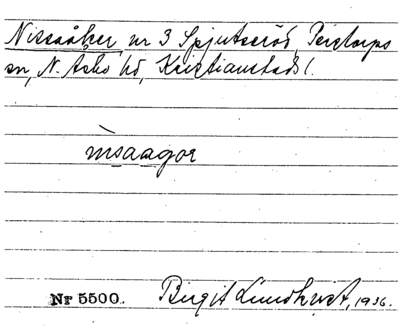 Nissaåker nr 3 Spjutseröd, Perstorps
sn, N. Åsbo hd, Kristianstads l.
ìnsaagor
Nr 5500. Birgit Lundkvist, 1936.